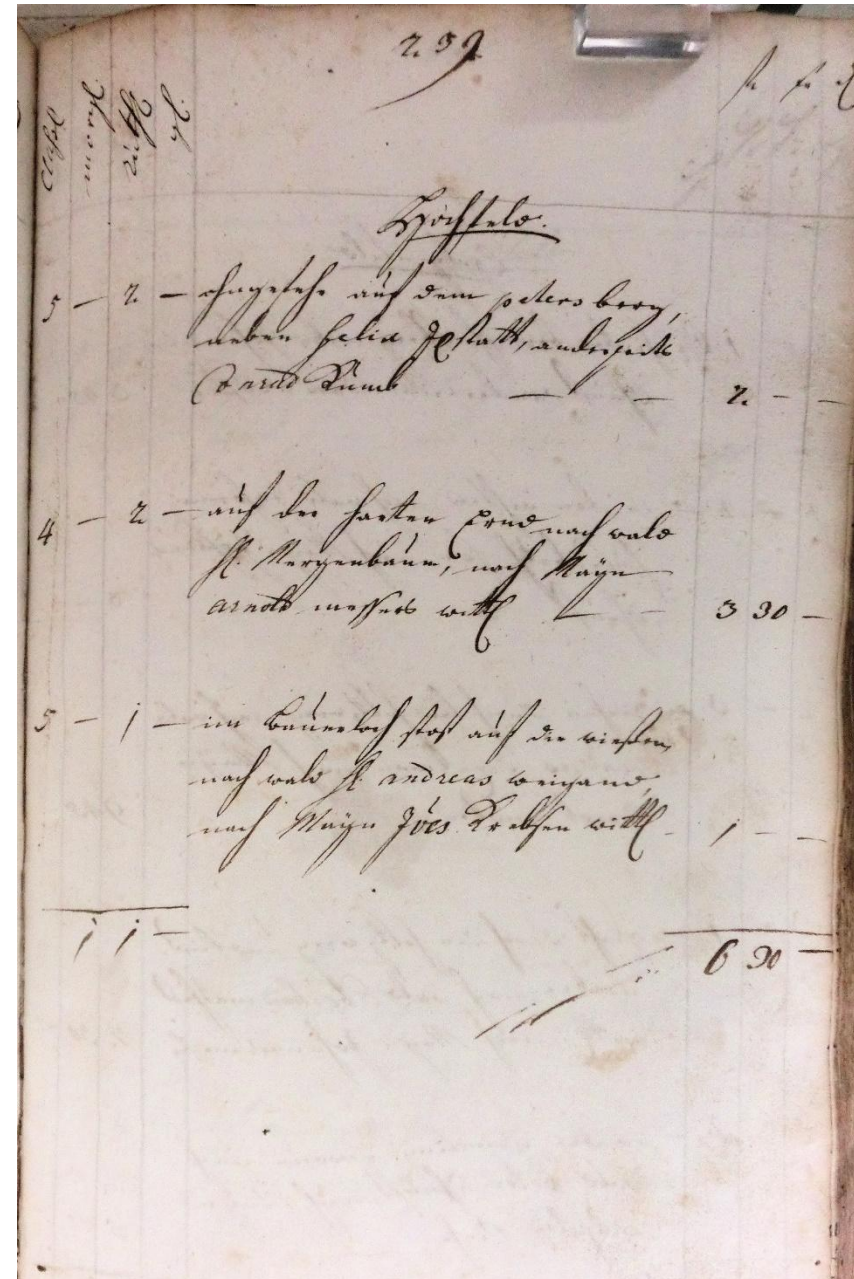 239
Class morg virtl
Hochfeld.
5 – 2 – ohngefehr auf dem petersberg,
neben Felix Jostatt, anderseits
2 – –
4 – 2 – auf der harten Erde nach wald
H. Nergenbaum, nach Mayn
arnold messers wittl – – 3 30 –
5 – 1 – im Bauerloch stost auf die wiesen,
nach wald H. andreas weigand,
nach Mayn Joes Krebsen wittl – 1 – –
1 1 – 6 30 –